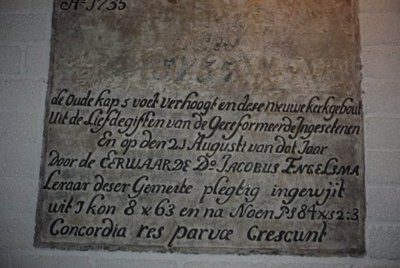 Aº 1735
1735
de Oude kap 5 voet verhoogt en dese nieuwe kerk gebout
Uit de Liefdegiften van de Gereformeerde Ingesetenen
En op den 21 Augusti van dat Jaar
Door de EERWAARDE Dº JACOBUS ENGELSMA
Leraar deser Gemeite plegtig ingewijt
wit I kon 8 x 63 en na Noen Ps 84 x s 2:3
Concordia res parvæ Crescunt